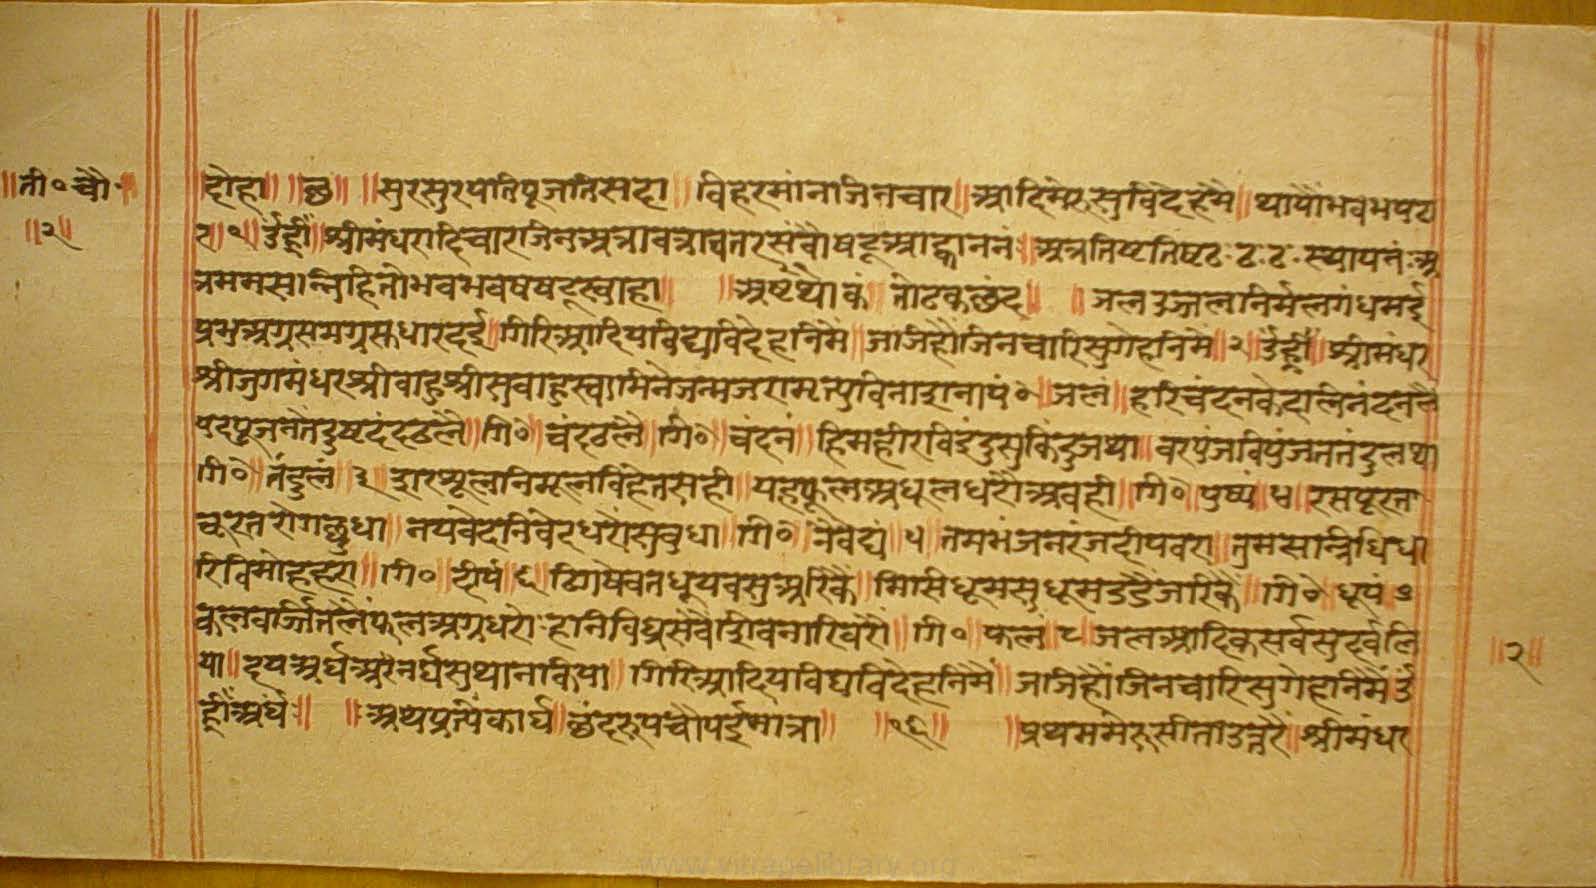 ॥ती॰चौ॰॥
॥२॥
दोहा॥ ॥छ॥ ॥सुरसुरपतिपूजतिसदा॥ विहरमांनजिनचार॥आदिमेरुसुविदेहमै॥थापौंभवभयटा
र॥१॥उँह्रीं॥श्रीमंधरादिचारजिनअत्रावत्रावतरसंवौषट्आह्वाननं॥अत्रतिष्टतिष्टठःठःठःस्थापनंःअ
त्रममसान्निहितोभवभवषषट्स्वाहा॥ ॥अष्टंथौकं॥तोटकछंद॥ ॥जलउजलनिर्मलगंधमई
प्रभुअग्रसमग्रसधारदई॥गिरिआदियविद्यविदेहनिमै॥जाजिहौजिनचारिसुगेहनिमे॥२॥उँह्रीं॥श्रीमंधर
श्रीजुगमंधरश्रीवाहुश्रीसुवाहुस्वामिनैजन्मजरामृत्युविनाशनायं॰॥जलं॥हरिचंदनकेदालिनंदनलै
पदपूजनतैदुष्टदंददलै॥गि॰॥चंदलै॥गि॰॥चंदनं॥हिमहीरविइंदुसुकिंदुजथा॥वरपुंजविपुंजततंदुलथा
गि॰॥तंदुलं॥३॥शरशूलनिमूलविहेतसही॥यहफूलअधूलधरौंअवही॥गि॰॥पुष्पं॥४॥रसपूरत
चूरतरोगछुधा॥नयवेदनिवेदधरौंसुवुधा॥गि॰॥नैवेद्यं॥५॥तमभंजनरंजदीपवरा॥तुमसान्निधिधा
रिविमोहहरा॥गि॰॥दीपं॥६॥ढिगषेवतधूपवसुअरिकैं॥मिसिधूमसुधूमउडैंजरिकैं॥गि॰॥धूपं॥७
कलवर्जितलैंफलअग्रधरो॥हानिविघ्नसंवैशिवनारिवरौं॥गि॰॥फलं॥८॥जलआदिकसर्वसुदर्वलि
या॥दयअर्घअनर्घसुथानकिया॥गिरिआदियविद्यविदेहनिमै॥जजिहौंजिनचारिसुगेहनिमैंउँ
ह्रींअर्घं॥ ॥अथप्रत्येकार्घ॥छंदरूपचौपईमात्रा॥ ॥१६॥ ॥प्रथममेरुसीताउत्तरै॥श्रीमंधर
॥२॥
www.vitragelibrary.org